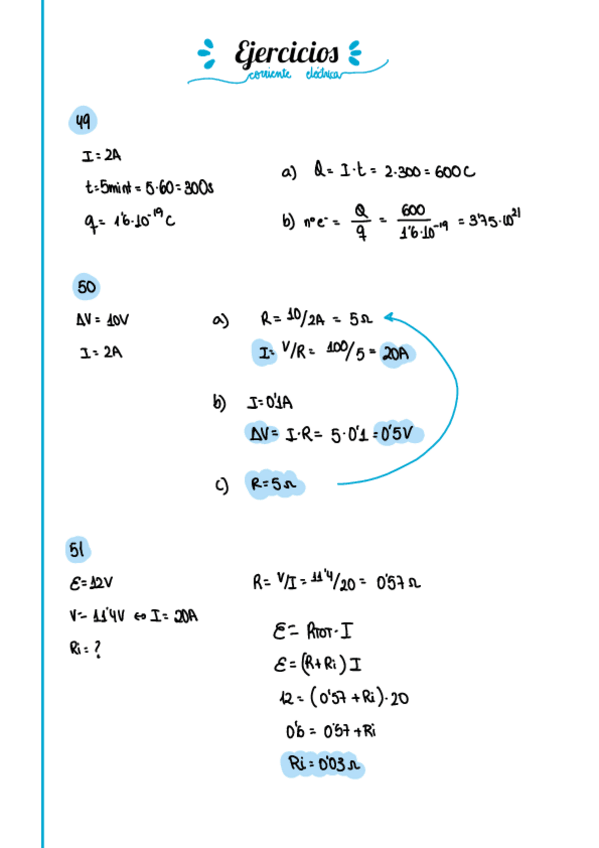 Ejercicios
corriente eléctrica
49
I = 2A
t = 5mint = 5·60 = 300s
q = 1'6·10⁻¹⁹ C
a) Q = I·t = 2·300 = 600 C
b) nº e⁻ = Q/q = 600/1'6·10⁻¹⁹ = 3'75·10²¹
50
ΔV = 10V
I = 2A
a) R = 10/2A = 5Ω
I = V/R = 100/5 = 20A
b) I = 0'1A
ΔV = I·R = 5·0'1 = 0'5V
c) R = 5Ω
51
Ɛ = 12V
V = 11'4V ↔ I = 20A
Ri = ?
R = V/I = 11'4/20 = 0'57Ω
Ɛ = RTOT·I
Ɛ = (R + Ri) I
12 = (0'57 + Ri)·20
0'6 = 0'57 + Ri
Ri = 0'03Ω